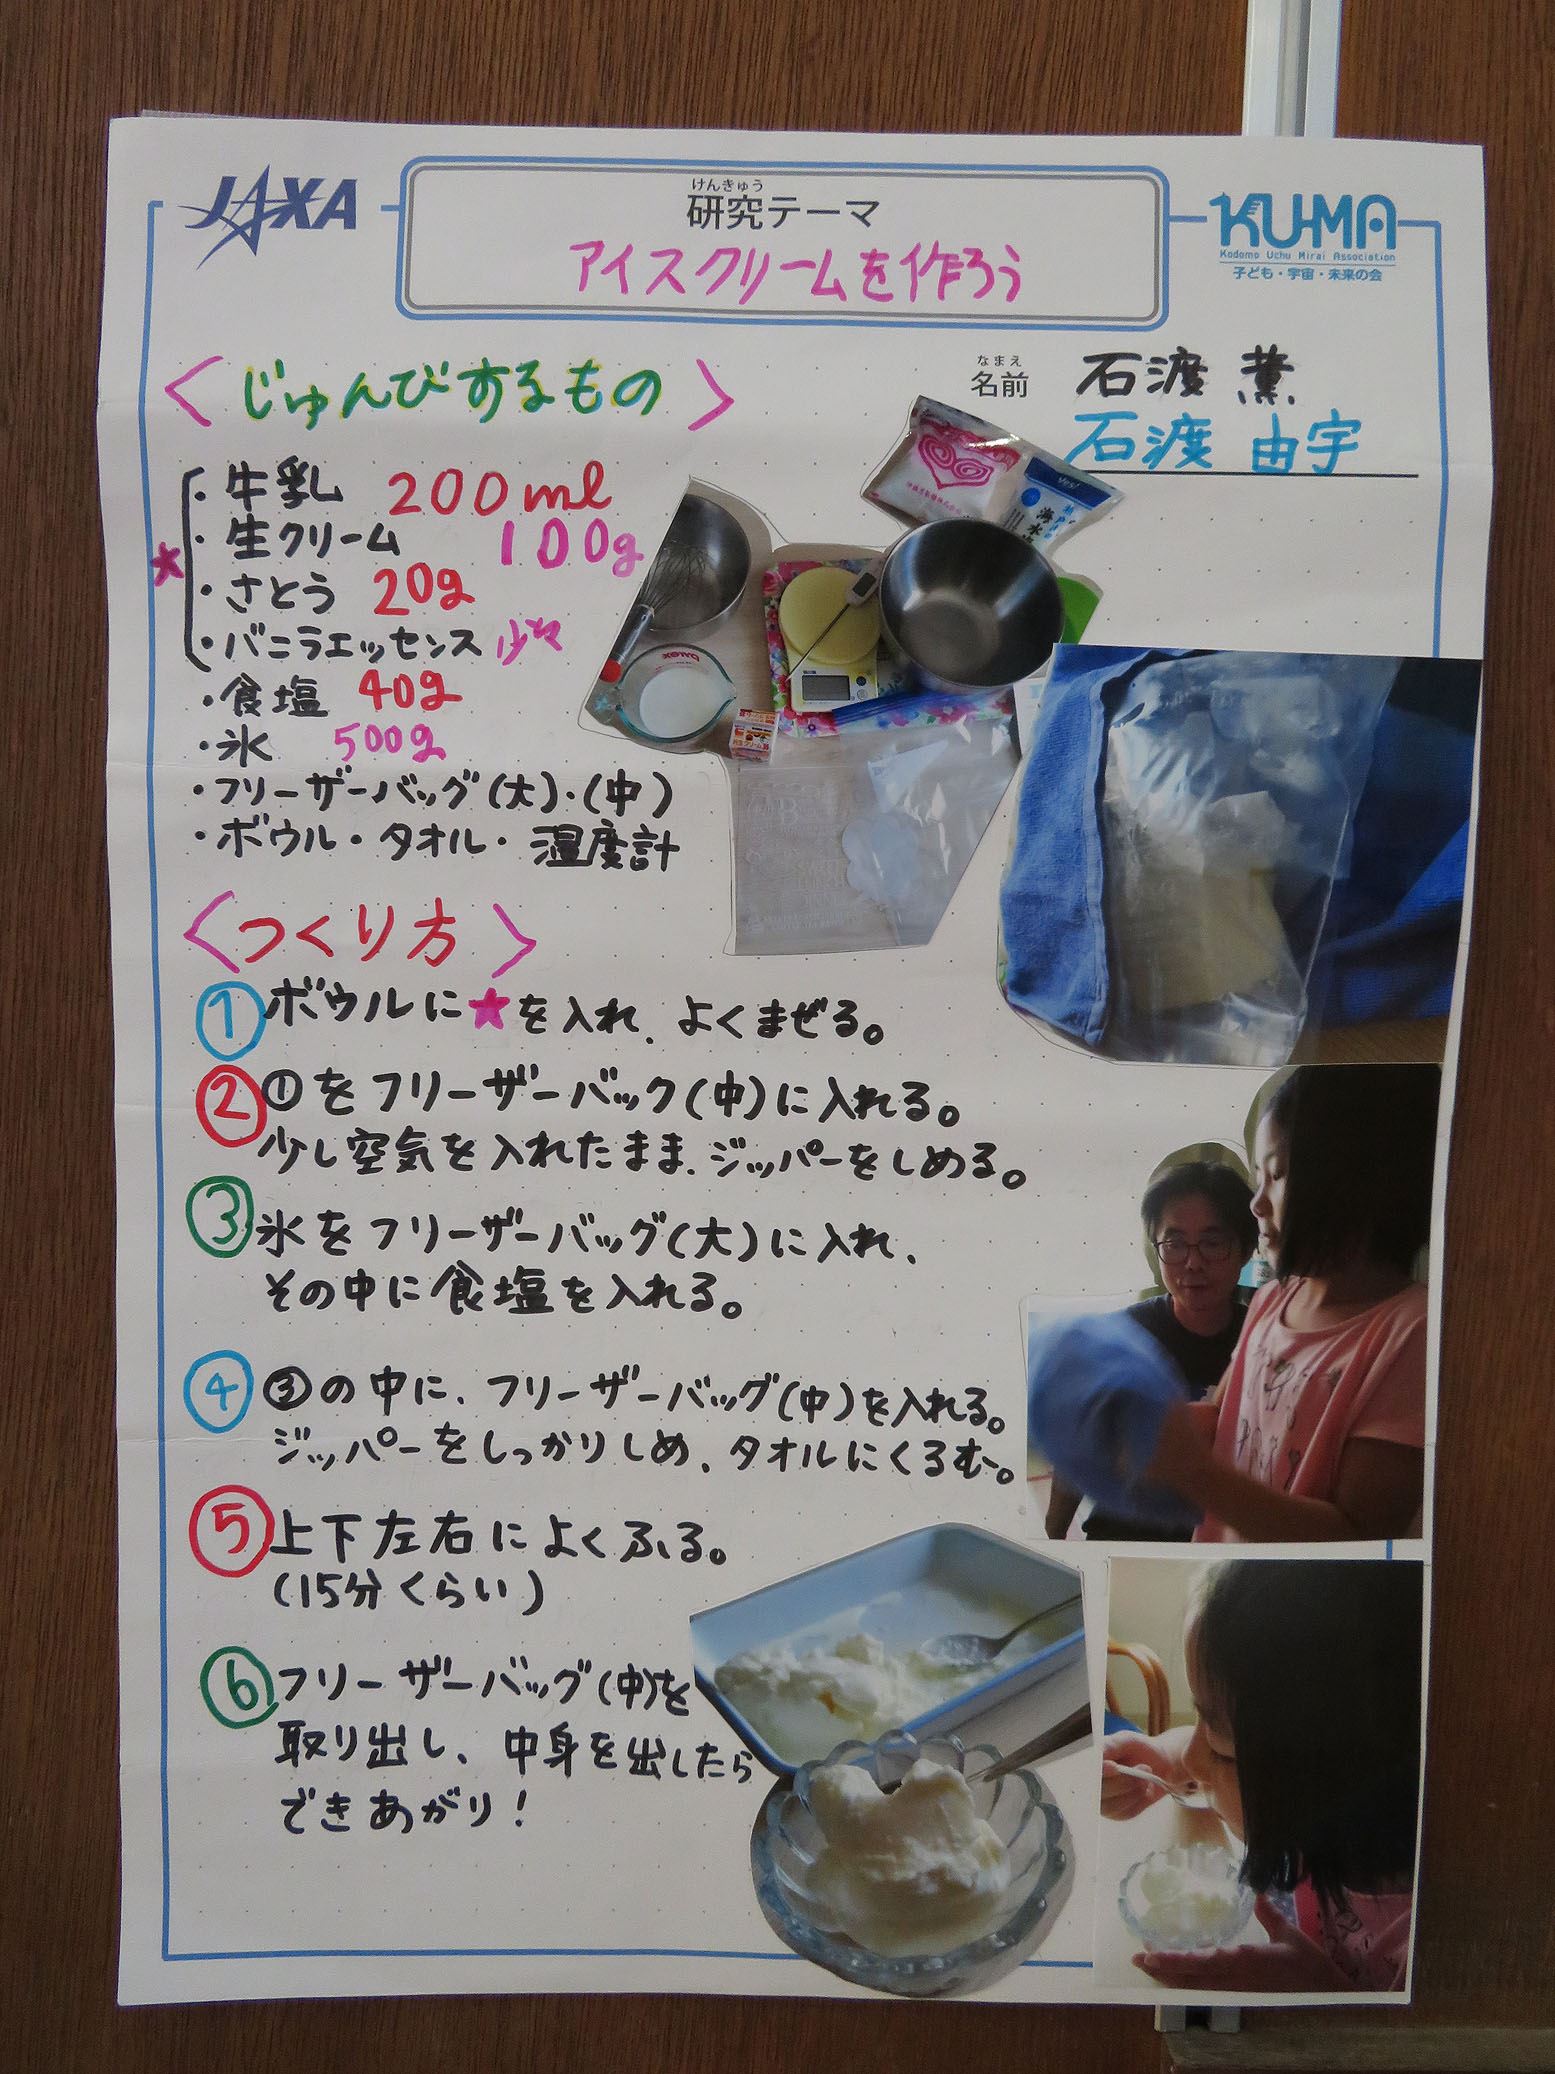 JAXA
けんきゅう
研究テーマ
アイスクリームを作ろう
KU-MA
Kodomo Uchu Mirai Association
子ども・宇宙・未来の会
なまえ
名前 石渡 薫
石渡 由宇
〈じゅんびするもの〉
★
・牛乳 200ml
・生クリーム 100g
・さとう 20g
・バニラエッセンス 少々
・食塩 40g
・氷 500g
・フリーザーバッグ(大)・(中)
・ボウル・タオル・温度計
〈つくり方〉
① ボウルに★を入れ、よくまぜる。
② ①をフリーザーバック(中)に入れる。
少し空気を入れたまま、ジッパーをしめる。
③ 氷をフリーザーバッグ(大)に入れ、
その中に食塩を入れる。
④ ③の中に、フリーザーバッグ(中)を入れる。
ジッパーをしっかりしめ、タオルにくるむ。
⑤ 上下左右によくふる。
(15分くらい)
⑥ フリーザーバッグ(中)を
取り出し、中身を出したら
できあがり!